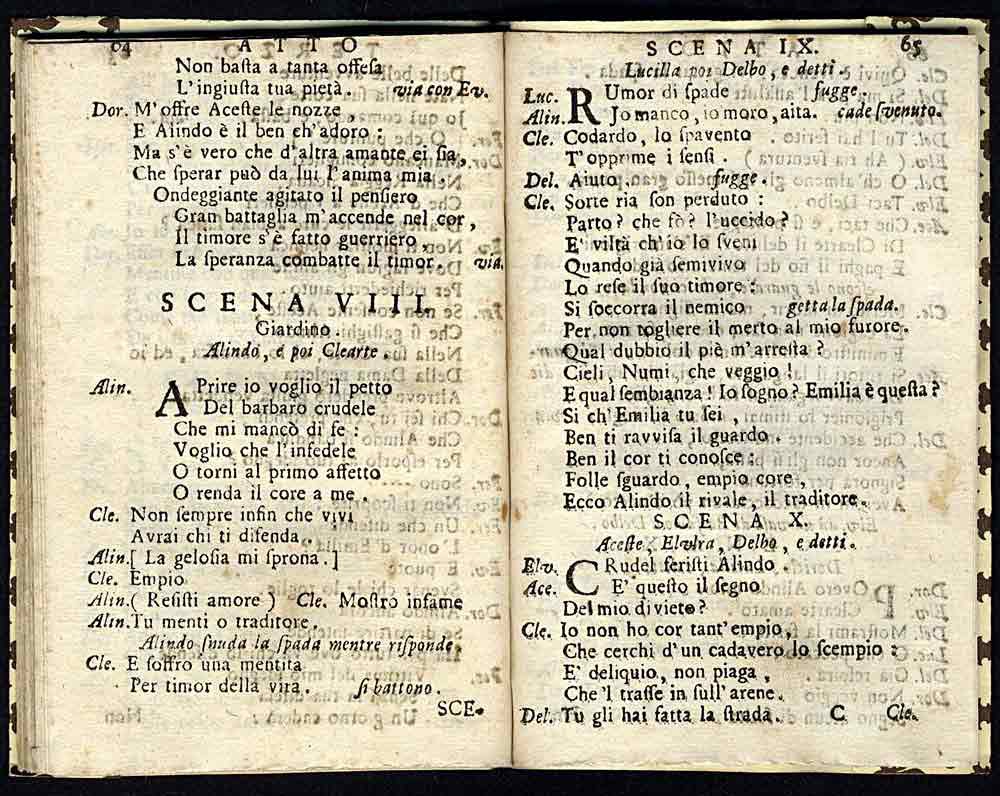 64 ATTO
Non baſta a tanta offeſa
L'ingiuſta tua pietà. via con Ev.
Dor. M'offre Aceſte le nozze
E Alindo è il ben ch'adoro :
Ma s'è vero che d'altra amante ei ſia,
Che ſperar può da lui l'anima mia.
Ondeggiante agitato il penſiero
Gran battaglia m'accende nel cor,
Il timore s'è fatto guerriero,
La ſperanza combatte il timor. via.
SCENA VIII.
Giardino.
Alindo, e poi Clearte.
Alin. APrire io voglio il petto
Del barbaro crudele
Che mi mancò di fe :
Voglio che l'infedele
O torni al primo affetto
O renda il core a me.
Cle. Non ſempre infin che vivi
Avrai chi ti difenda.
Alin.[ La geloſia mi ſprona.]
Cle. Empio
Alin.( Reſiſti amore ) Cle. Moſtro infame
Alin.Tu menti o traditore.
Alindo ſnuda la ſpada mentre riſponde.
Cle. E ſoffro una mentita
Per timor della vita. ſi battono.
SCE-
SCENA IX. 65
Lucilla poi Delbo, e detti.
Luc. RUmor di ſpade fugge.
Alin. Jo manco, io moro, aita. cade ſvenuto.
Cle. Codardo, lo ſpavento
T'opprime i ſenſi.
Del. Aiuto. fugge.
Cle. Sorte ria ſon perduto :
Parto? che fò? l'uccido?
E' viltà ch'io lo ſveni
Quando già ſemivivo
Lo reſe il ſuo timore :
Si ſoccorra il nemico getta la ſpada.
Per non togliere il merto al mio furore.
Qual dubbio il piè m'arreſta ?
Cieli, Numi, che veggio !
E qual ſembianza ! Io ſogno? Emilia è queſta?
Si ch'Emilia tu ſei,
Ben ti ravviſa il guardo.
Ben il cor ti conoſce :
Folle ſguardo, empio core,
Ecco Alindo il rivale, il traditore.
SCENA X.
Aceſte, Elvira, Delbo, e detti.
Elv. CRudel feriſti Alindo.
Ace. E' queſto il ſegno
Del mio divieto?
Cle. Io non ho cor tant'empio,
Che cerchi d'un cadavero lo ſcempio :
E' deliquio, non piaga,
Che 'l traſſe in ſull'arene.
Del. Tu gli hai fatta la ſtrada. C Cle.